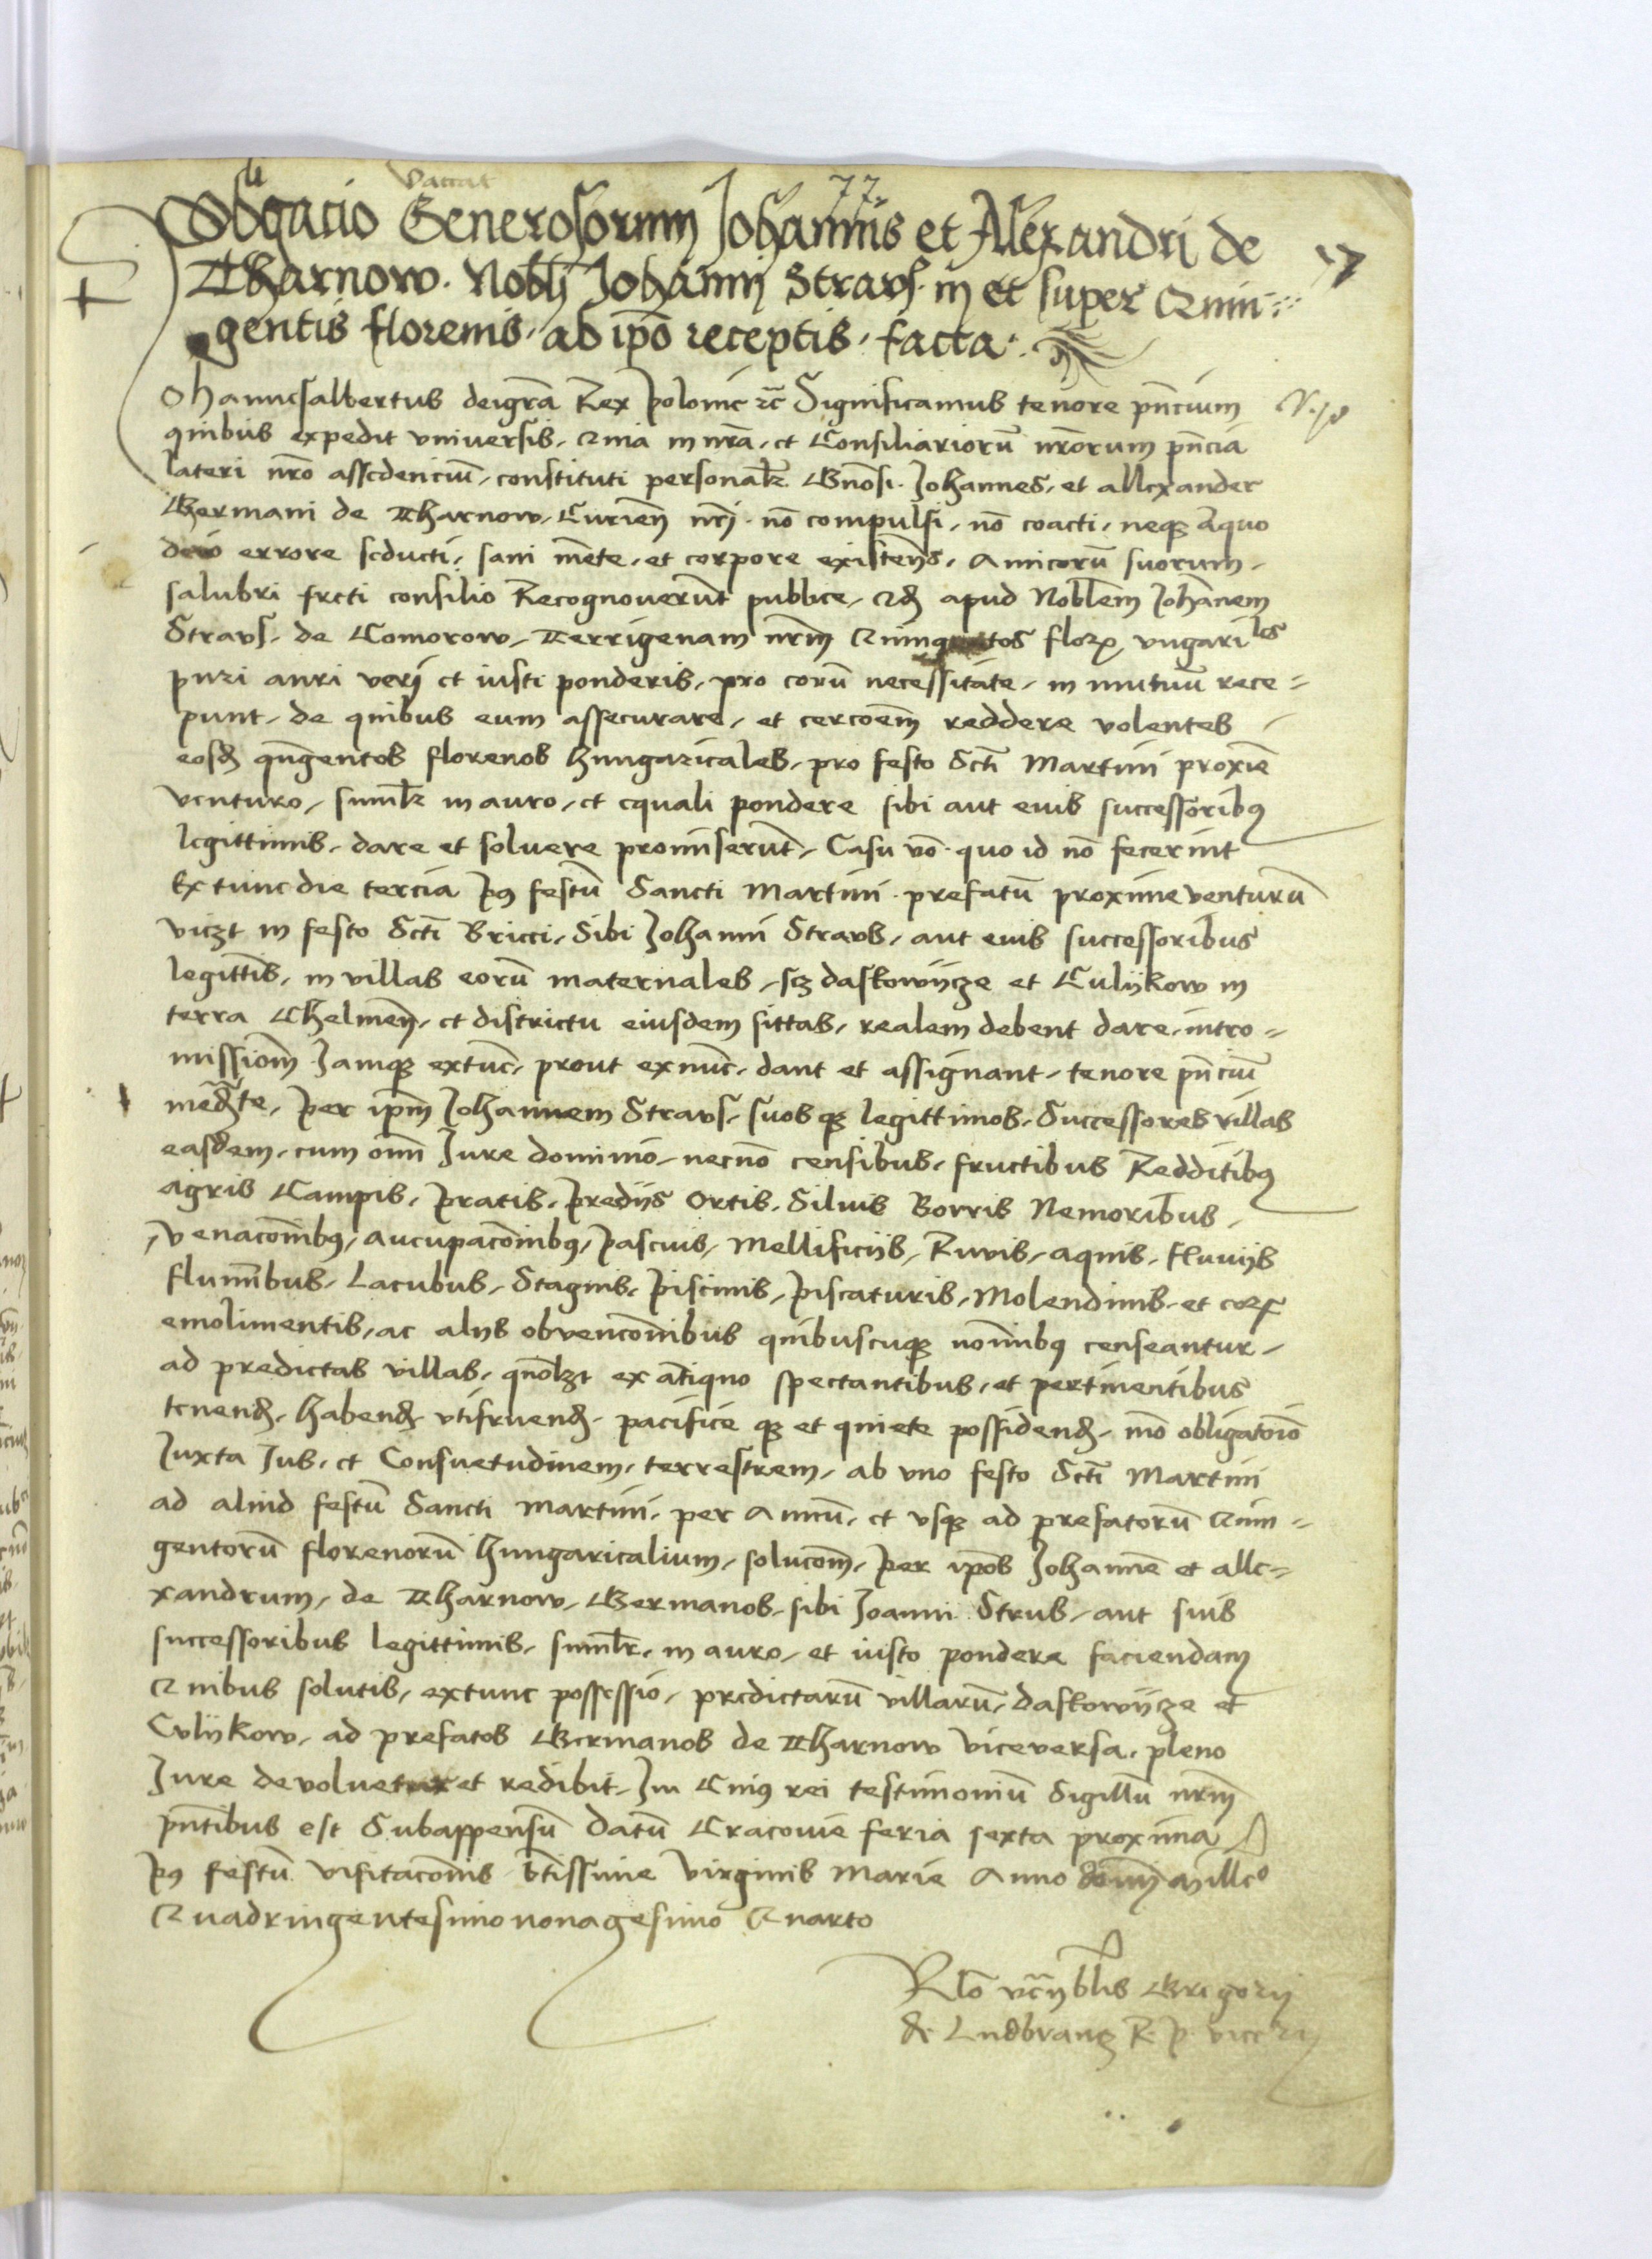 Vaccat
77
17
Obligacio Generosorum Johannis et Alexandri de
Tharnow. Nobli Johanni Straus. in et super Quin-
gentis florenis. ab ipo receptis. facta.
Johannes albertus dei gra Rex Polonie etc Significamus tenore pncium
quibus expedit vniversis. Quia in nra. et Consiliariorum nrorum pncia
lateri nro assedencium. constituti personalr Gnosi. Johannes. et allexander
Germani de Tharnow. Curien nri. no compulsi. no coacti. neqz aliquo
devio errore seducti. sani mente. et corpore existens. Amicorum suorum.
salubri freti consilio Recognoverunt publice. Qd apud Noblem Johannem
Straus. de Comorow. Terrigenam nrm Quingentos flor vngariles
puri auri veri et iusti ponderis. pro eorum necessitate. in mutuum rece-
punt. de quibus eum assecurare. et cercoem reddere volentes
eosd qngentos florenos hungaricales. pro festo Scti Martini proxime
venturo. simlr in auro. et equali pondere sibi aut euis successoribus
legittimis. dare et soluere promiserunt. Casu vo. quo id no fecerint
Ex tunc die tercia post festum Sancti Martini. prefatum proxime venturum
viczt in festo Scti Bricci. Sibi Johanni Straus. aut euis successoribus
legittis. in villas eorum maternales. scz daskowycze et Culykow in
terra Chelmen. et districtu eiusdem sittas. realem debent dare. intro-
missiom Jamqz extunc. prout exnunc. dant et assignant. tenore pncium
mediante. per ipm Johannem Straus. suosqz legittimos. Successores villas
easdem. cum omni Jure dominio. necno censibus. fructibus Redditibus
agris Campis. pratis. predijs Ortis. Siluis Borris Nemoribus.
venacombus. aucupacombus. pascuis. Mellificijs. Rivis. aquis. fluvijs
fluminbus. Lacubus. Stagnis. piscinis. piscaturis. Molendinis. et eorum
emolimentis. ac alijs obvencombus quibuscuqz nominbus censeantur.
ad predictas villas. qnolzt ex antiquo spectantibus. et pertinentibus
tenend. habend vtifruend. pacifice qz et quiete possidend. mo obligatorio
Juxta Jus. et Consuetudinem. terrestrem. ab vno festo Scti Martini
ad aliud festum Sancti Martini. per Annum. et vsqz ad prefatorum Quin-
gentorum florenorum hungaricalium. solucom. per ipos Johanne et alle-
xandrum. de Tharnow. Germanos. sibi Joanni Strus. aut suis
successoribus legittimis. simlr. in auro. et iusto pondere faciendam
Quibus solutis. extunc possessio. predictarum villarum. daskowycze et
Culykow. ad prefatos Germanos de Tharnow viceversa. pleno
Jure devoluetur et redibit. In Cuius rei testimonium Sigillum nrm
pntibus est Subappensum datum Cracovie feria sexta proxima
post festum visitacomis btissime virginis Marie Anno domini millo
Quadringentesimo nonagesimo Quarto
Rlo vnblis Gregorij
de Ludbrancz R. P. vicecr